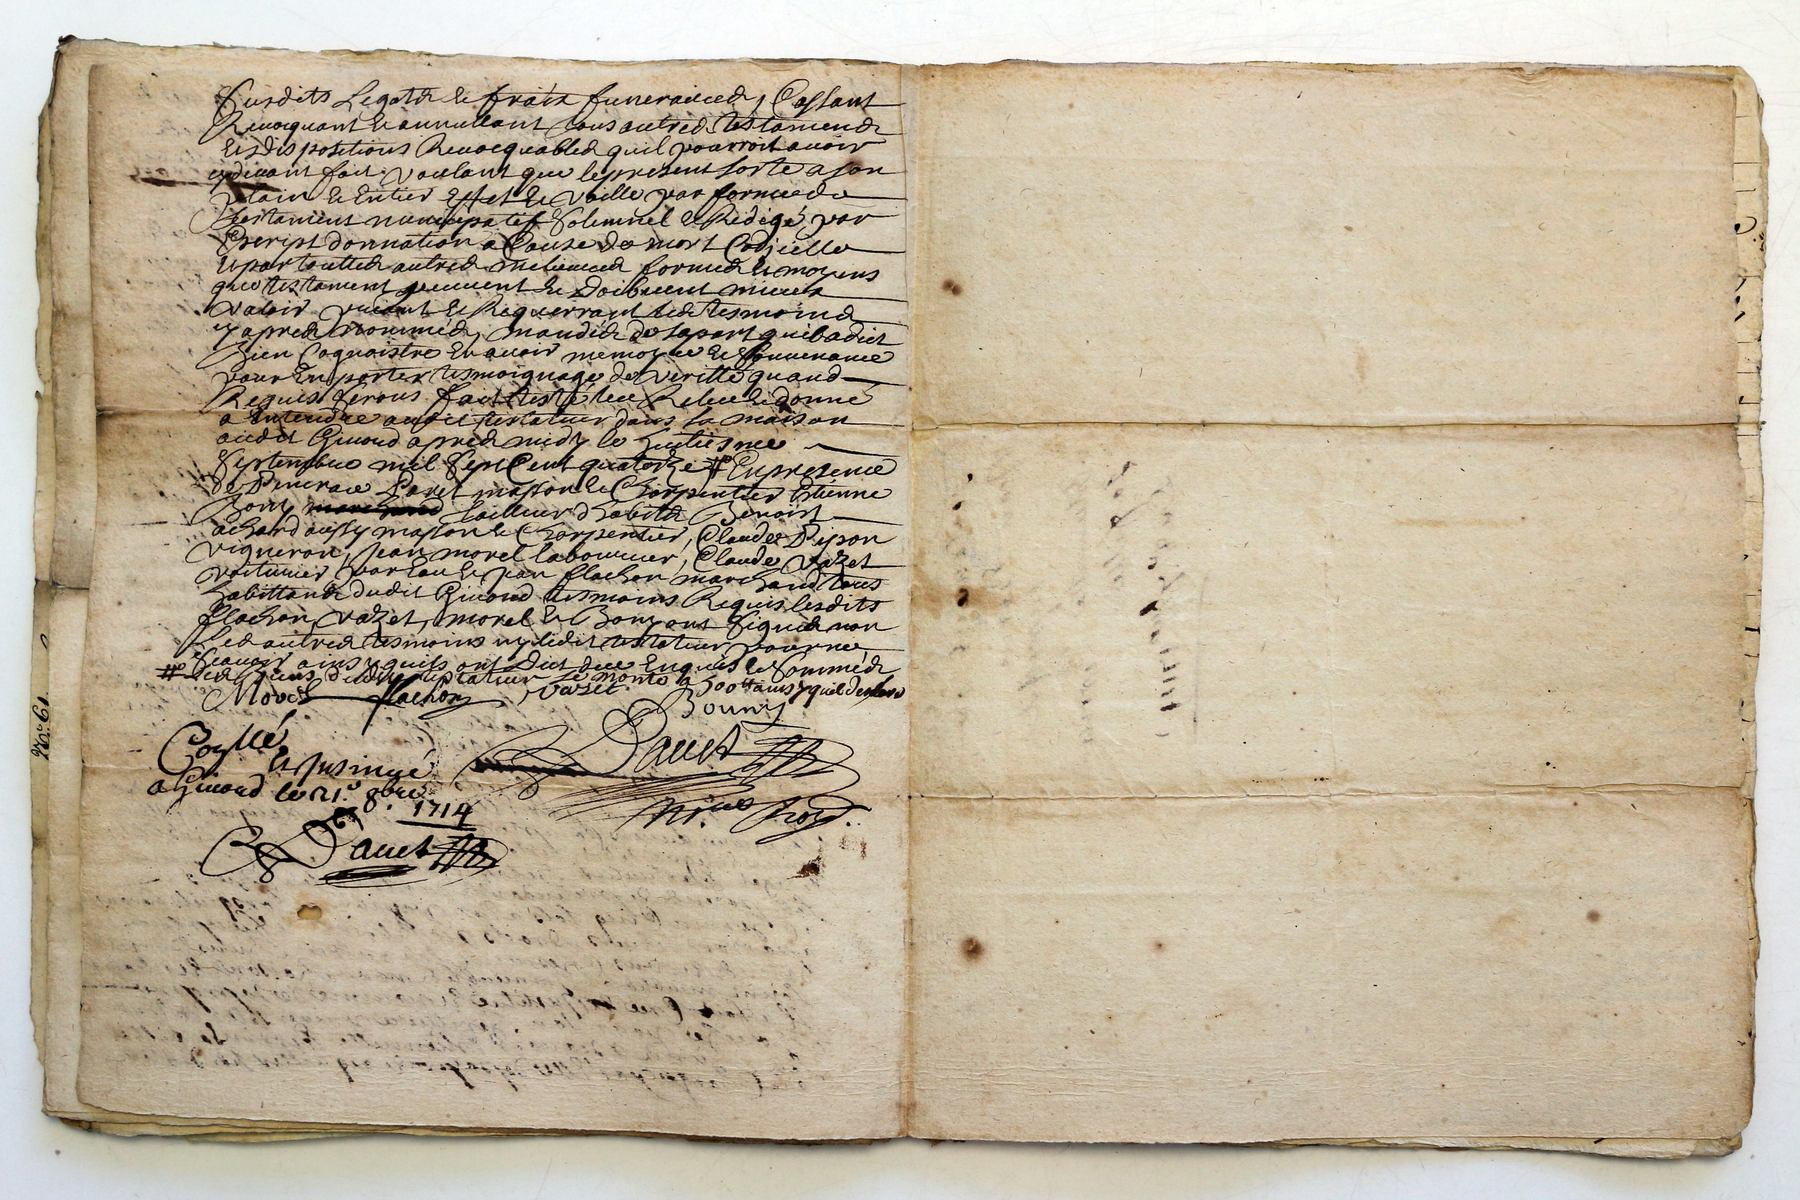 susdits Legats et fraix funeraires, Cassant
Revoquant et annullant tous autres testaments
et dispositions Revocquables quil pourroit avoir
cy devant fait, voulant que le present sorte a son
plain et entier effet et vaille par forme de
testament nuncupatif solemnel et Redigé par
Escript donnation a Cause de mort Codicille
et par touttes autres meilleures formes et moyens
que testament peuvent et doibvent mieux
valoir priant et Requerrant les tesmoins
cy apres nommés, mandés de sa part quil a dict
bien Cognoistre en avoir memoyre et souvenance
pour En porter tesmoignage de veritté quand
Requis serons fait testé leu Releu et donné
a Entendre audit testateur dans sa maison
audit Givord apres midy le huitiesme
Septembre mil Sept Cent quatorze # En presence
de Pancrace Paret masson et Charpentier Etienne
Bony tailleur d'habits Benoist
achard aussy masson et Charpentier, Claude Pipon
vigneron, Jean morel laboureur, Claude vazet
voiturier par Eau et jean flachon marchand tous
habittants dudit Givord tesmoins Requis lesdits
flachon, vazet, morel et Bony ont signés non
les autres tesmoins ny ledit testateur pour ne
Scavoir ainsy quils ont dict de ce Enquis et Sommés
# les biens dudit testateur se monte a 300 ainsy quil declare
Morel flachon vazet
Bouny
Dauet
Coyllé
et Insinué
a Givord le 21.e 8bre
1714
Dauet
No. 61